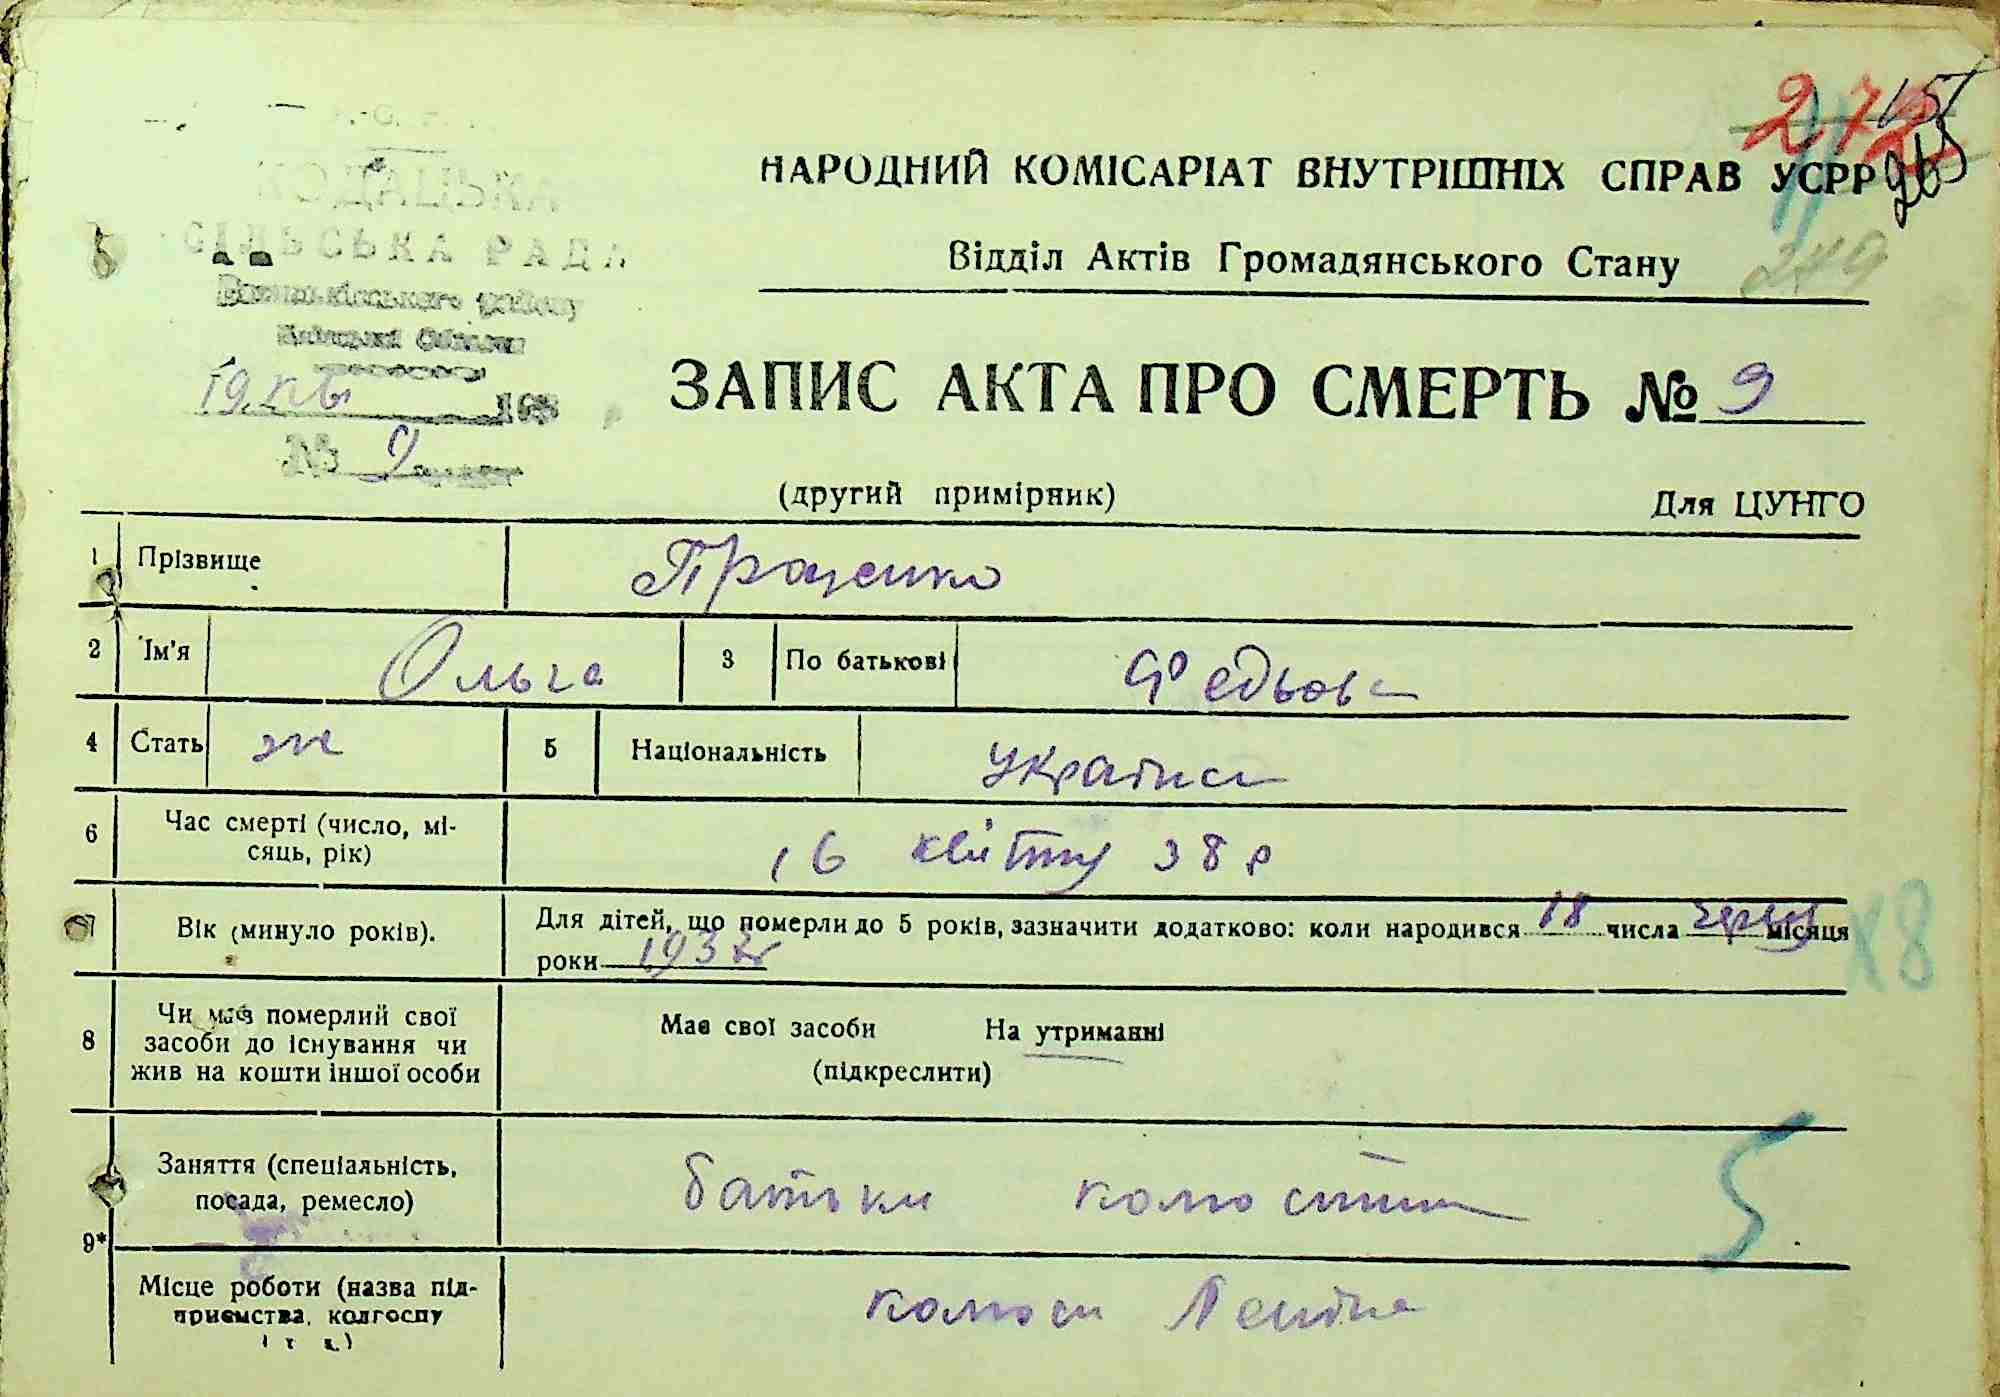 КОДАЦЬКА
СІЛЬСЬКА РАДА
Васильківського району
Київської Області
19. кв 193
№ 9
272
15
265
249
НАРОДНИЙ КОМІСАРІАТ ВНУТРІШНІХ СПРАВ УСРР
Відділ Актів Громадянського Стану
ЗАПИС АКТА ПРО СМЕРТЬ № 9
(другий примірник) Для ЦУНГО
1 Прізвище Проценко
2 Ім'я Ольга 3 По батькові Федьовн
4 Стать ж 5 Національність Украінс
6 Час смерті (число, мі-
сяць, рік) 16 квітня 38 р
7 Вік (минуло років). Для дітей, що померли до 5 років, зазначити додатково: коли народився 18 числа червня місяця
роки 1937
х8
8 Чи мав померлий свої
засоби до існування чи
жив на кошти іншої особи
Має свої засоби На утриманні
(підкреслити)
9* Заняття (спеціальність,
посада, ремесло) батьки
5
Місце роботи (назва під-
приємства, колгоспу
і т. д.) Леніна